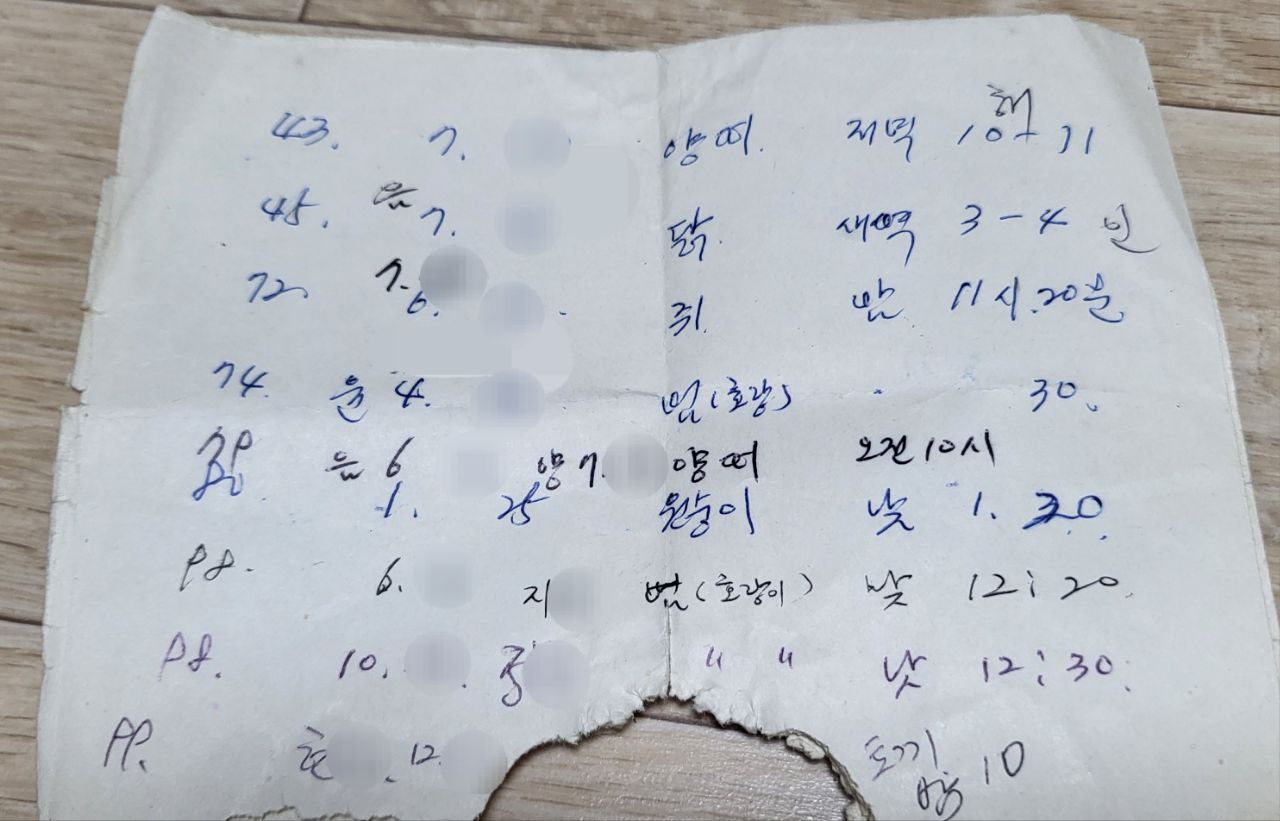 43. 7. 양띠. 저녁 10 - 11 해
45. 음 7. 닭. 새벽 3 - 4 인
72 7. 6. 쥐. 밤 11시.20분
74 윤 4. 범(호랑) 30.
79 음 6 양 7. 양띠 오전 10시
80. 1. 25 원숭이 낮 1. 30.
98. 6. 지 범(호랑이) 낮 12:20.
98. 10. 중 " " 낮 12:30.
99. 12. 토끼 밤 10